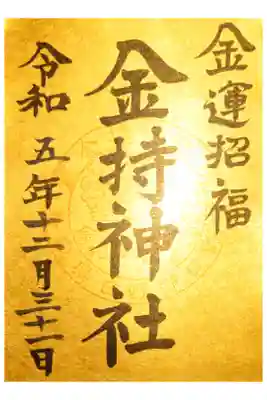 金運招福
金持神社
令和五年十二月三十一日